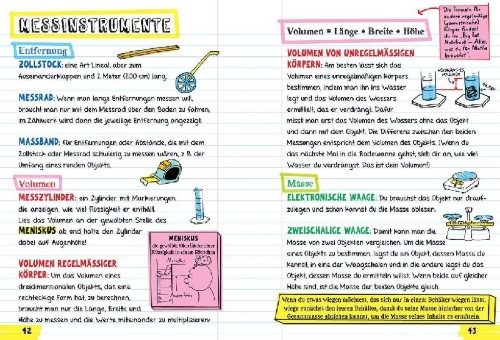 MESSINSTRUMENTE
Entfernung
ZOLLSTOCK: eine Art Lineal, aber zum
Auseinanderklappen und 2 Meter (200 cm) lang.
MESSRAD: Wenn man lange Entfernungen messen will,
braucht man nur mit dem Messrad über den Boden zu fahren,
im Zählwerk wird dann die jeweilige Entfernung angezeigt.
MASSBAND: für Entfernungen oder Abstände, die mit dem
Zollstock oder Messrad schwierig zu messen wären, z. B. der
Umfang eines runden Objekts.
Volumen
MESSZYLINDER: ein Zylinder mit Markierungen,
die anzeigen, wie viel Flüssigkeit er enthält.
Lies das Volumen an der gewölbten Stelle des
MENISKUS ab und halte den Zylinder
dabei auf Augenhöhe!
MENISKUS
die gewölbte Oberfläche einer
Flüssigkeit in einem Röhrchen
VOLUMEN REGELMÄSSIGER
KÖRPER: Um das Volumen eines
dreidimensionalen Objekts, das eine
rechteckige Form hat, zu berechnen,
braucht man nur die Länge, Breite und
Höhe zu messen und die Werte miteinander zu multiplizieren:
42
Volumen = Länge • Breite • Höhe
Die Formeln für
andere regelmäßige
(geometrische)
Körper findest
du im Big Fat
Notebook – Alles,
was du für Mathe
brauchst.
VOLUMEN VON UNREGELMÄSSIGEN
KÖRPERN: Am besten lässt sich das
Volumen eines unregelmäßigen Körpers
bestimmen, indem man ihn ins Wasser
legt und das Volumen des Wassers
ermittelt, das er verdrängt. Dafür
misst man erst das Volumen des Wassers ohne das Objekt
und dann mit dem Objekt. Die Differenz zwischen den beiden
Messungen entspricht dem Volumen des Objekts. (Wenn du
das nächste Mal in die Badewanne gehst, sieh dir an, wie viel
Wasser du verdrängst. Das ist dein Volumen!)
Masse
ELEKTRONISCHE WAAGE: Du brauchst das Objekt nur drauf-
zulegen und schon kannst du die Masse ablesen.
ZWEISCHALIGE WAAGE: Damit kann man die
Masse von zwei Objekten vergleichen. Um die Masse
eines Objekts zu bestimmen, legst du ein Objekt, dessen Masse du
kennst, in eine der Waagschalen und in die andere legst du das
Objekt, dessen Masse du ermitteln willst. Wenn beide auf gleicher
Höhe sind, ist die Masse der beiden Objekte gleich.
Wenn du etwas wiegen möchtest, das sich nur in einem Behälter wiegen lässt,
wiege zunächst den leeren Behälter, damit du seine Masse hinterher von der
Gesamtmasse abziehen kannst, um die Masse seines Inhalts zu ermitteln.
43